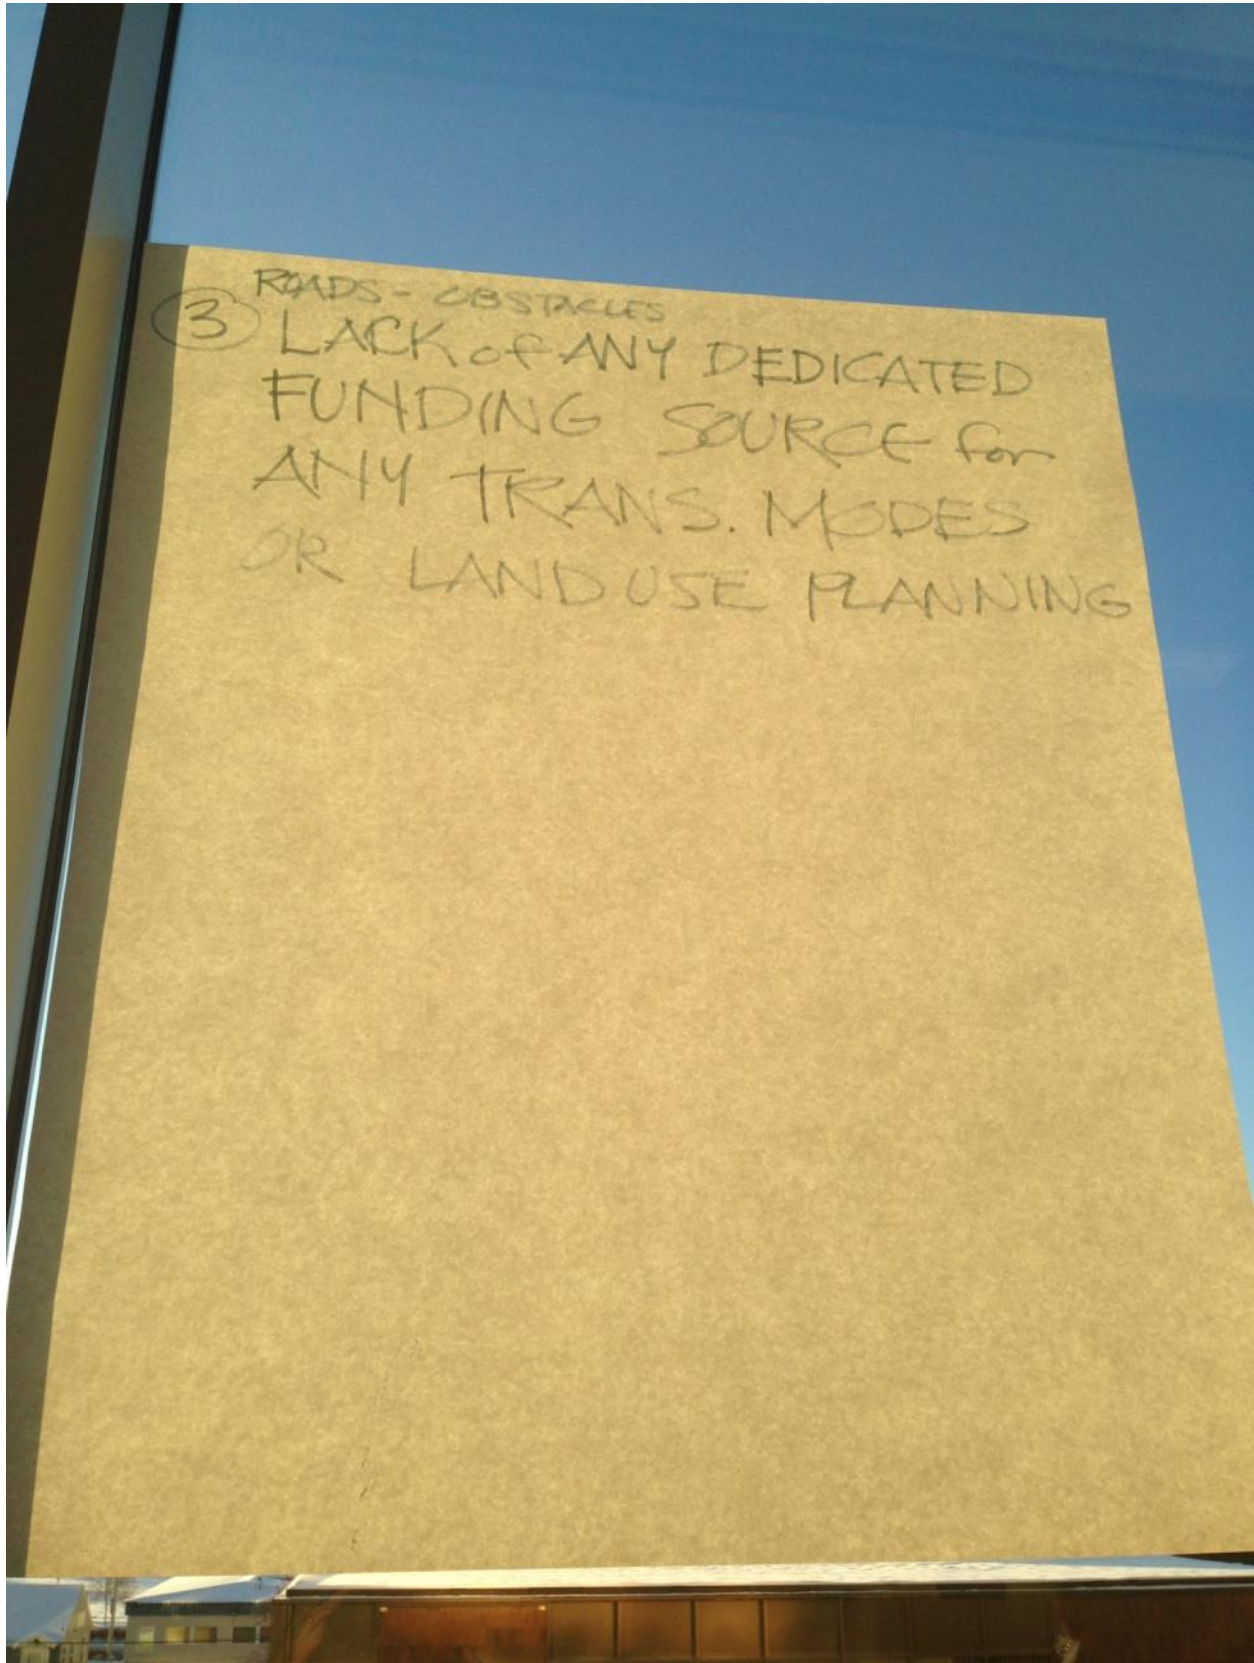 ROADS - OBSTACLES
③ LACK of ANY DEDICATED
FUNDING SOURCE for
ANY TRANS. MODES
OR LAND USE PLANNING